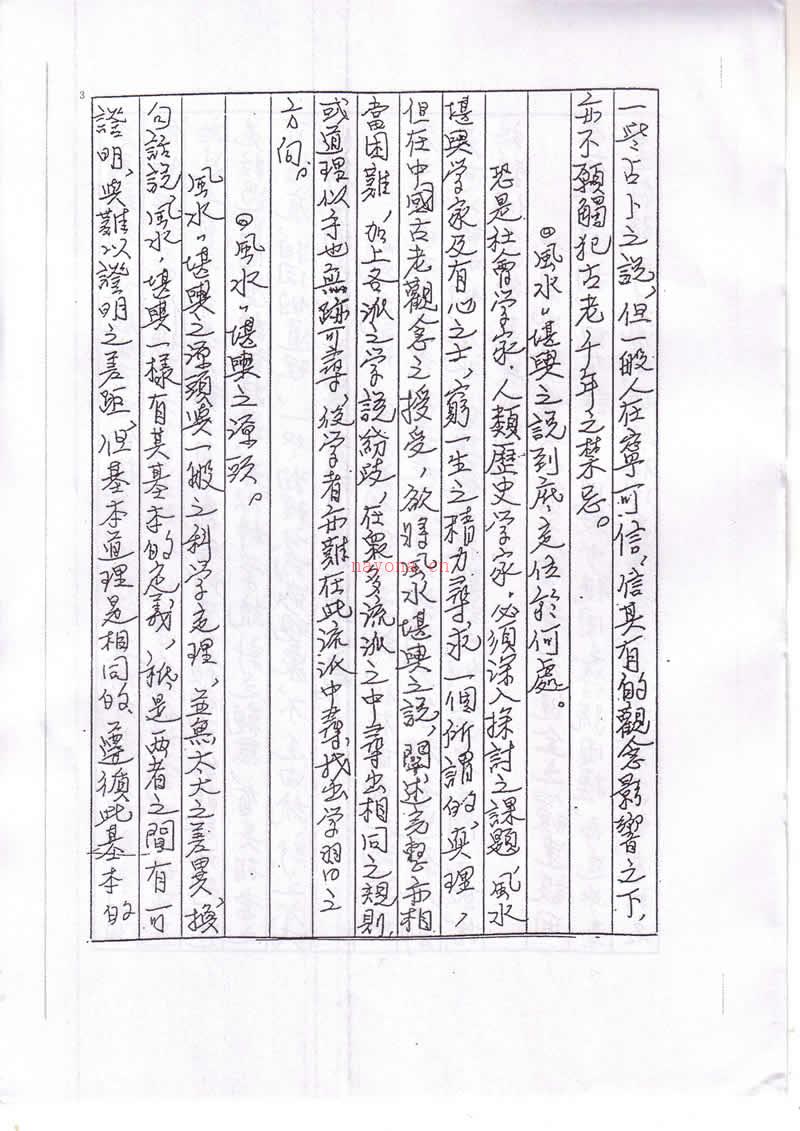 一些占卜之說,但一般人在寧可信,信其有的觀念影響之下,
亦不願觸犯古老千年之禁忌。
◎風水"堪輿之說到底定位於何處。
恐是社會学家.人類歷史学家,必須深入探討之課題,風水
堪輿学家及有心之士,窮一生之精力尋求一個所謂的真理,
但在中國古老觀念之授受,欲將風水堪輿之說,闡述完整亦相
當困難,加上各派之学說紛歧,在衆多流派之中尋出相同之規則,
或道理似乎也無跡可尋,後学者亦難在此流派中尋找出学習之
方向。
◎風水"堪輿之源頭。
風水"堪輿之源頭與一般之科学定理,並無太大之差異,換
句話說,風水,堪輿一樣有其基本的定義,祇是两者之間有可
證明,與難以證明之差距,但基本道理是相同的,遵循此基本的
3
nayona.cn